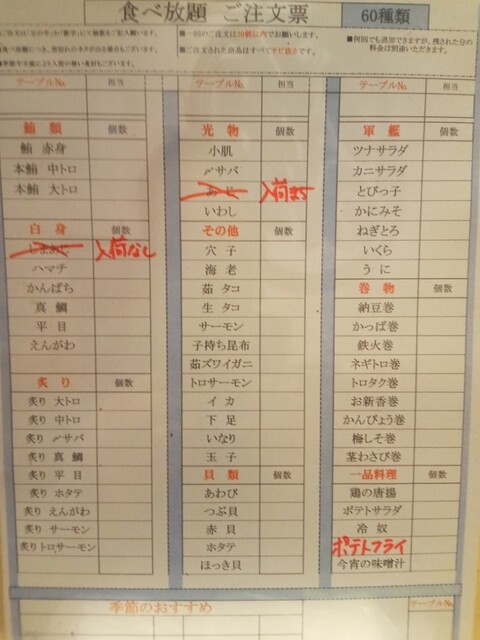 食べ放題 ご注文票
60種類
■一回のご注文は20個以内でお願いします。
■ご注文された商品はすべてサビ抜きです。
■何回でも追加できますが、残された分の
料金は別途いただきます。
テーブル№ 担当
鮪類 個数
鮪 赤身
本鮪 中トロ
本鮪 大トロ
白身 個数
しまあじ 入荷なし
ハマチ
かんぱち
真鯛
平目
えんがわ
炙り 個数
炙り 大トロ
炙り 中トロ
炙り 〆サバ
炙り 真鯛
炙り 平目
炙り ホタテ
炙り えんがわ
炙り サーモン
炙りトロサーモン
テーブル№ 担当
光物 個数
小肌
〆サバ
あじ 入荷まち
いわし
その他 個数
穴子
海老
茹 タコ
生 タコ
サーモン
子持ち昆布
茹ズワイガニ
トロサーモン
イカ
下足
いなり
玉子
貝類 個数
あわび
つぶ貝
赤貝
ホタテ
ほっき貝
テーブル№ 担当
軍艦 個数
ツナサラダ
カニサラダ
とびっ子
かにみそ
ねぎとろ
いくら
うに
巻物 個数
納豆巻
かっぱ巻
鉄火巻
ネギトロ巻
トロタク巻
お新香巻
かんぴょう巻
梅しそ巻
茎わさび巻
一品料理 個数
鶏の唐揚
ポテトサラダ
冷奴
ポテトフライ
今宵の味噌汁
季節のおすすめ
テーブル№